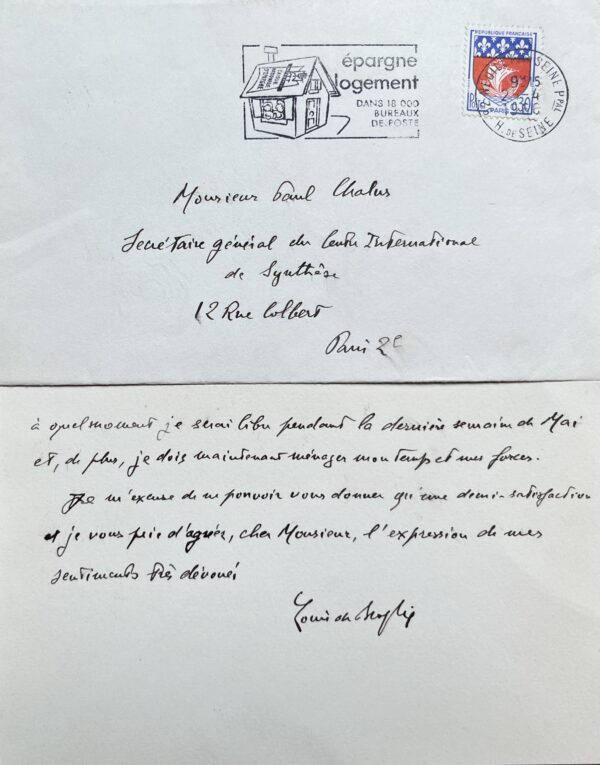 épargne
logement
DANS 18 000
BUREAUX
DE POSTE
REPUBLIQUE FRANÇAISE
0,30
PARIS
SEINE PPAL
9H15
2-4
H. DE SEINE
Monsieur Paul Chalus
Secrétaire général du Centre International
de Synthèse
12 Rue Colbert
Paris 2e
à quel moment je serai libre pendant la dernière semaine de Mai
et, de plus, je dois maintenant ménager mon temps et mes forces.
Je m'excuse de ne pouvoir vous donner qu'une demi-satisfaction
et je vous prie d'agréer, cher Monsieur, l'expression de mes
sentiments très dévoués
Louis de Broglie